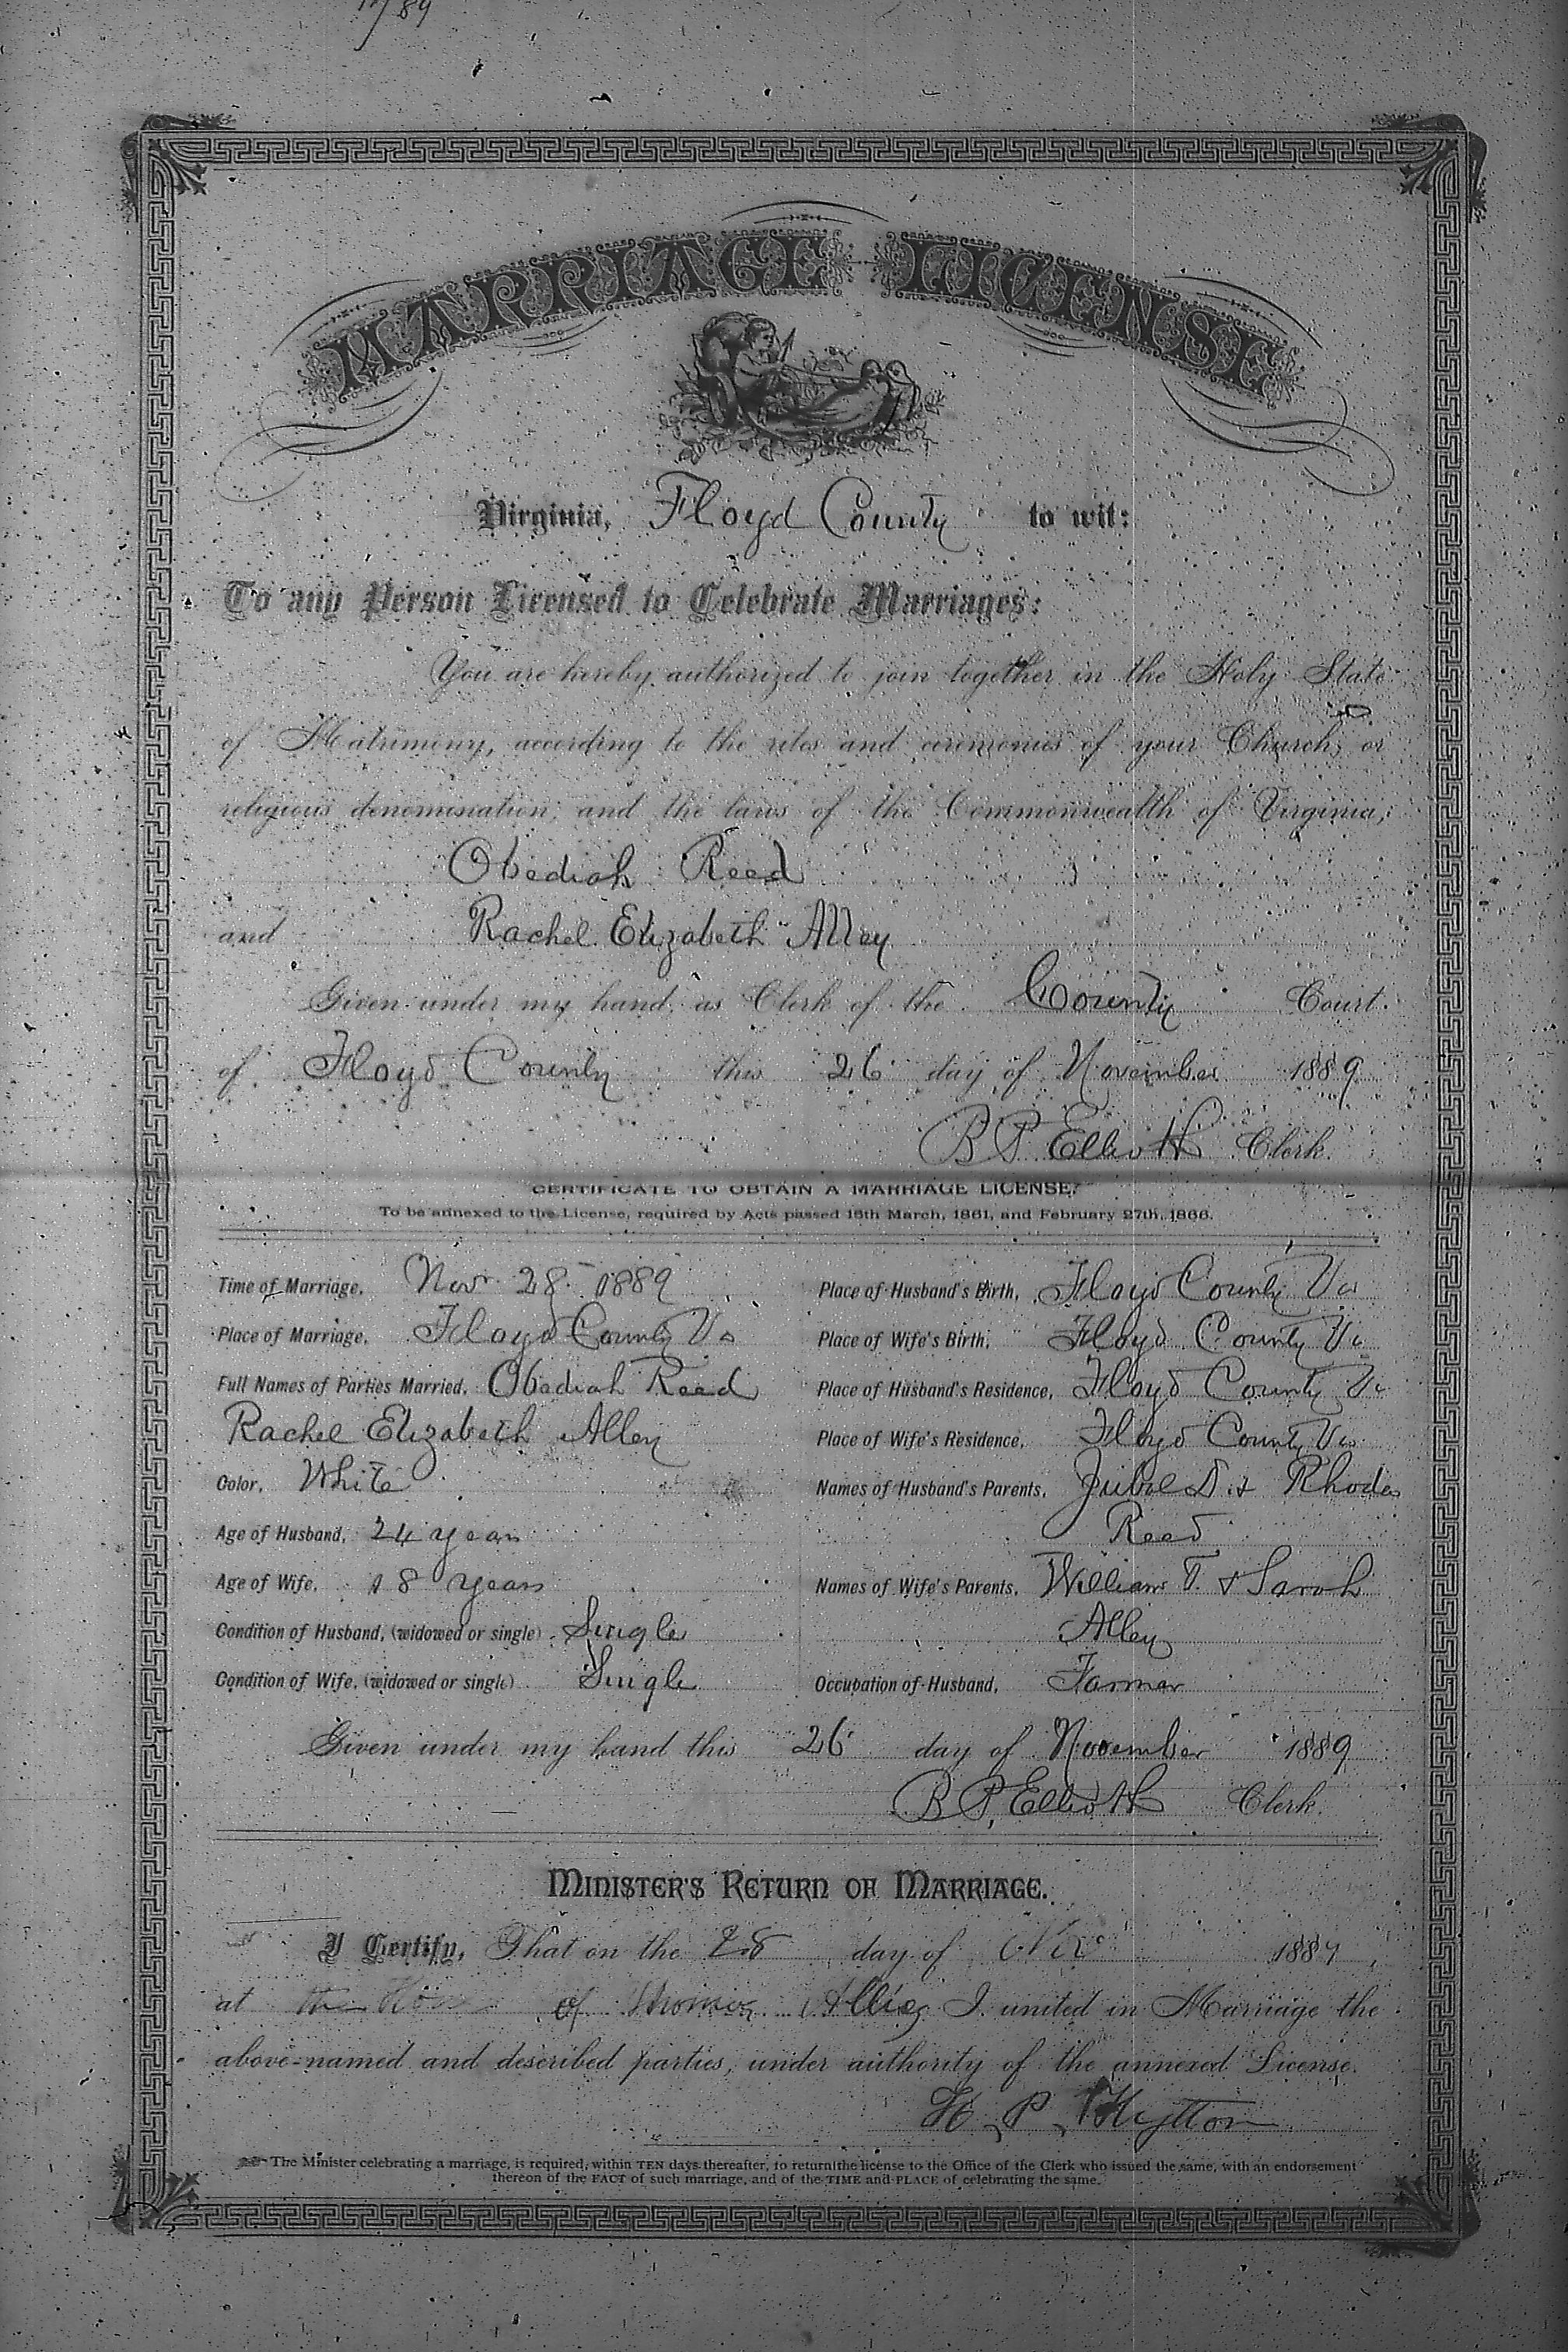 /89
MARRIAGE LICENSE
Virginia, Floyd County to wit:
To any Person Licensed to Celebrate Marriages:
You are hereby authorized to join together in the Holy State
of Matrimony, according to the rites and ceremonies of your Church, or
religious denomination, and the laws of the Commonwealth of Virginia,
Obediah Reed
and Rachel Elizabeth Alley
Given under my hand, as Clerk of the County Court
of Floyd County this 26 day of November 1889
B P Elliott Clerk.
CERTIFICATE TO OBTAIN A MARRIAGE LICENSE.
To be annexed to the License, required by Acts passed 15th March, 1861, and February 27th, 1866.
Time of Marriage, Nov 28 1889
Place of Marriage, Floyd County Va
Full Names of Parties Married, Obediah Reed
Rachel Elizabeth Alley
Color, White
Age of Husband, 24 years
Age of Wife, 18 years
Condition of Husband, (widowed or single) Single
Condition of Wife, (widowed or single) Single
Place of Husband's Birth, Floyd County Va
Place of Wife's Birth, Floyd County Va
Place of Husband's Residence, Floyd County Va
Place of Wife's Residence, Floyd County Va
Names of Husband's Parents, Jubal D. & Rhoda
Reed
Names of Wife's Parents, William T. & Sarah
Alley
Occupation of Husband, Farmer
Given under my hand this 26 day of November 1889
B P. Elliott Clerk.
MINISTER'S RETURN OF MARRIAGE.
I Certify, That on the 28 day of Nov 1889,
at the of Thomas I united in Marriage the
above-named and described parties, under authority of the annexed License.
P Hylton
The Minister celebrating a marriage, is required, within TEN days thereafter, to return the license to the Office of the Clerk who issued the same, with an endorsement
thereon of the FACT of such marriage, and of the TIME and PLACE of celebrating the same.